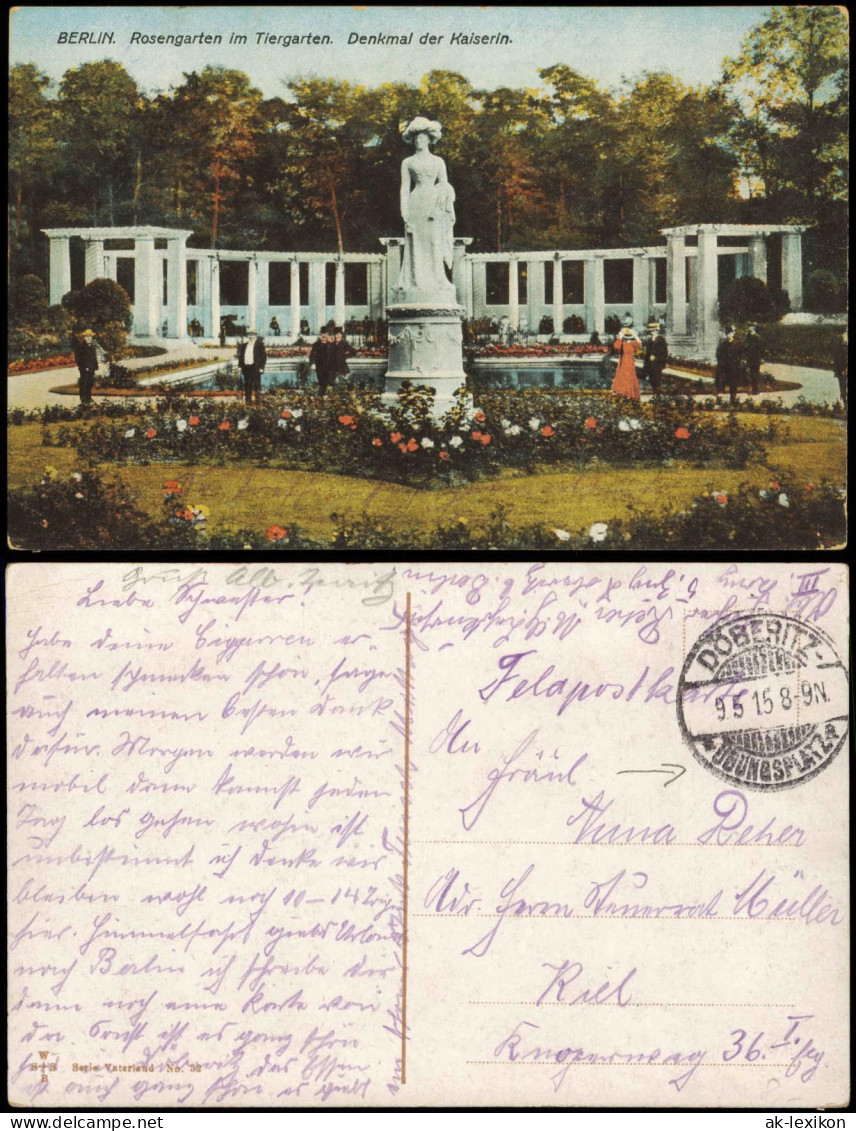 BERLIN. Rosengarten im Tiergarten. Denkmal der Kaiserin.
Gruß Alb.
Liebe Schwester!
habe deine Ciggarren er-
halten schmecken schön, sage
auch meinen besten Dank
dafür. Morgen werden wir
mobil dann kannst jeden
Tag los gehen wohin ist
unbestimmt ich denke wir
bleiben wohl noch 10-14 Tage
hier. Himmelfahrt giebts Urlaub
nach Berlin ich schreibe dir
dann noch eine Karte von
da. Sonst ist es ganz schön
hier Döberitz das Essen
ist auch ganz schön. es giebt
W
S S
B
Serie Vaterland No. 52
Feldpostkarte
An
Fräul
Anna Reher
Adr. Herrn Steuerrat Müller
Kiel
Knooperweg 36. I.
DÖBERITZ-
9.5 15 8-9N.
ÜBUNGSPLATZ
ak-lexikon.com